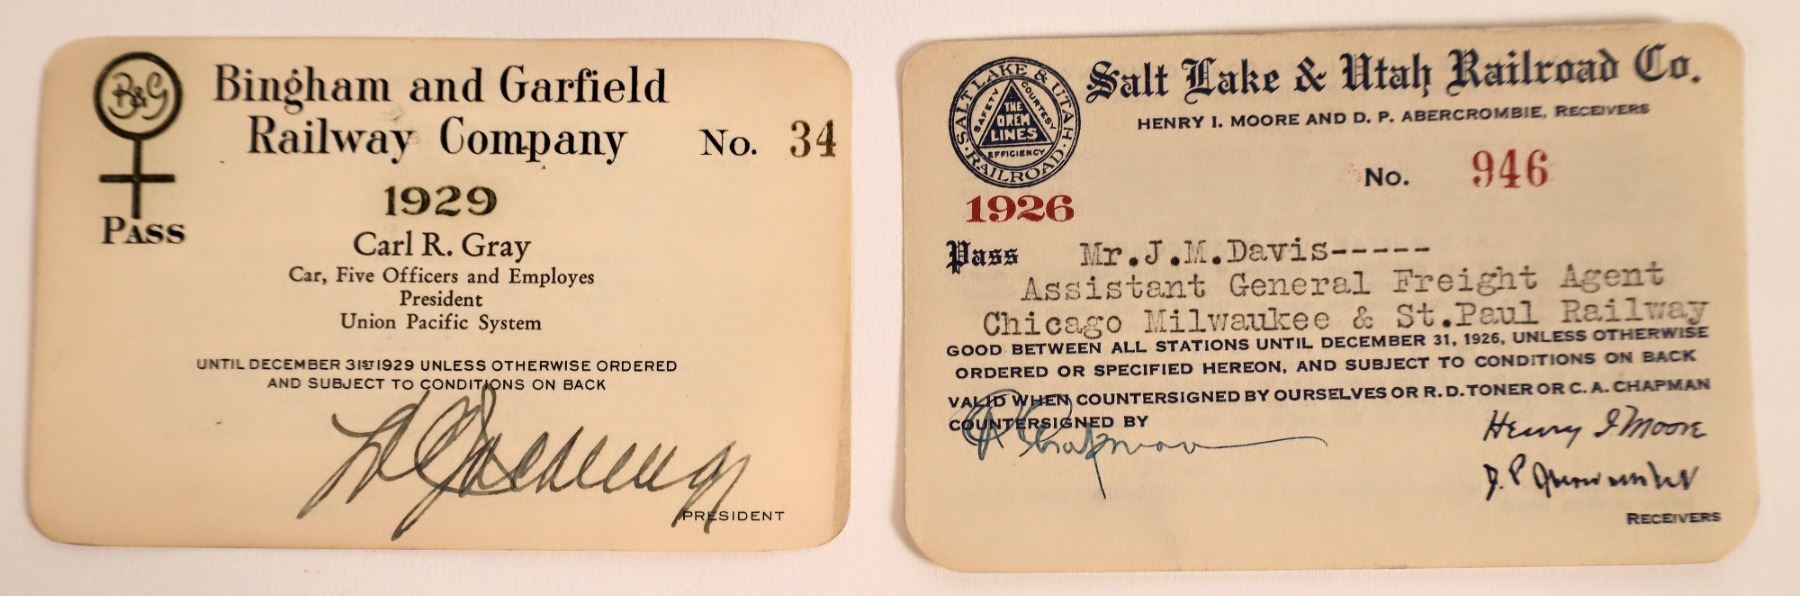 B&G
Bingham and Garfield
Railway Company
No. 34
1929
PASS
Carl R. Gray
Car, Five Officers and Employes
President
Union Pacific System
UNTIL DECEMBER 31ST 1929 UNLESS OTHERWISE ORDERED
AND SUBJECT TO CONDITIONS ON BACK
PRESIDENT
SALT LAKE & UTAH
RAILROAD
SAFETY COURTESY
EFFICIENCY
THE
OREM
LINES
Salt Lake & Utah Railroad Co.
HENRY I. MOORE AND D. P. ABERCROMBIE, RECEIVERS
No. 946
1926
Pass Mr.J.M.Davis-----
Assistant General Freight Agent
Chicago Milwaukee & St.Paul Railway
GOOD BETWEEN ALL STATIONS UNTIL DECEMBER 31, 1926, UNLESS OTHERWISE
ORDERED OR SPECIFIED HEREON, AND SUBJECT TO CONDITIONS ON BACK
VALID WHEN COUNTERSIGNED BY OURSELVES OR R. D. TONER OR C. A. CHAPMAN
COUNTERSIGNED BY
C A Chapman
Henry I Moore
D. P. Abercrombie
RECEIVERS